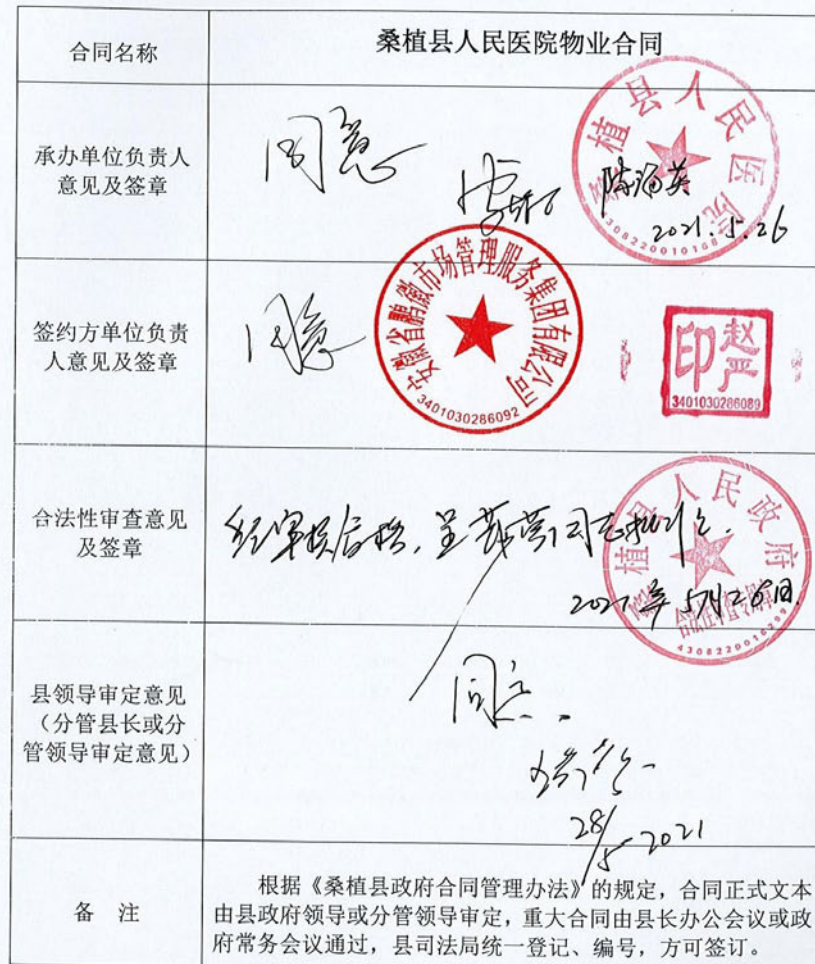 合同名称
桑植县人民医院物业合同
承办单位负责人
意见及签章
同意
陈海英
2021.5.26
桑植县人民医院
签约方单位负责
人意见及签章
同意
安徽省鹏徽市场管理服务集团有限公司
3401030286092
赵严印
3401030286089
合法性审查意见
及签章
2021年5月28日
桑植县人民政府
合法性审查专用章
县领导审定意见
(分管县长或分
管领导审定意见)
同意
28/5 2021
备 注
根据《桑植县政府合同管理办法》的规定,合同正式文本
由县政府领导或分管领导审定,重大合同由县长办公会议或政
府常务会议通过,县司法局统一登记、编号,方可签订。